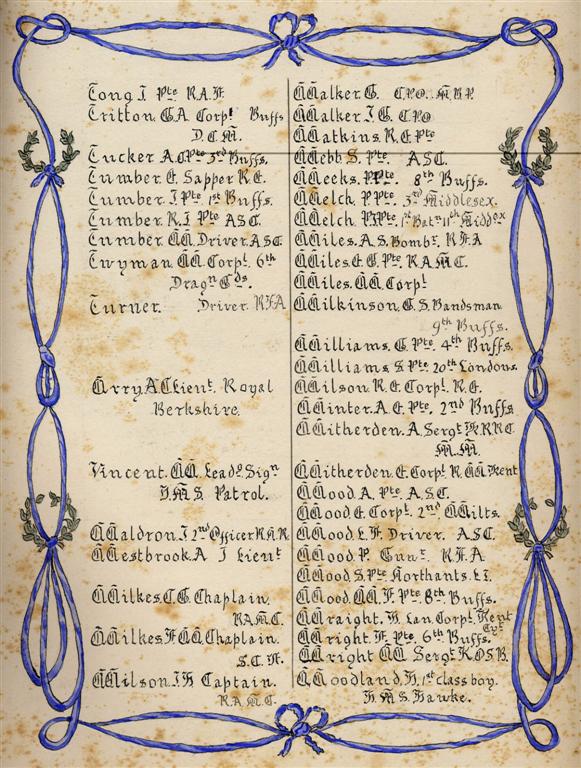 Tong. J. Pte. R.A.F.
Tritton. G.A. Corpl. Buffs
D.C.M.
Tucker. A.C. Pte 3rd Buffs.
Tumber. E. Sapper R.E.
Tumber. J. Pte 1st Buffs.
Tumber. R.J. Pte A.S.C.
Tumber. W. Driver. A.S.C.
Twyman. W. Corpl. 6th
Dragn Gds.
Turner. Driver. R.F.A.
Urry. A.C. Lieut. Royal
Berkshire.
Vincent. W. Leadg Sign
H.M.S. Patrol.
Waldron. J. 2nd Officer R.N.R.
Westbrook. A. J. Lieut
Wilkes. C.G. Chaplain.
R.A.M.C.
Wilkes. F.W. Chaplain.
S.C.F.
Wilson. J.H. Captain.
R.A.M.C.
Walker. G. C.P.O.
Walker. J.G. C.P.O.
Watkins. R.E. Pte
Webb. S. Pte. A.S.C.
Weeks. P. Pte. 8th Buffs.
Welch. P. Pte. 3rd Middlesex.
Welch. P.J. Pte. 1st Batn 11th Middex
Wiles. A.S. Bombr. R.F.A.
Wiles. E.G. Pte. R.A.M.C.
Wiles. W. Corpl
Wilkinson. C.S. Bandsman.
9th Buffs.
Williams. C. Pte. 4th Buffs.
Williams. S. Pte. 20th Londons.
Wilson. R.E. Corpl. R.E.
Winter. A.E. Pte. 2nd Buffs.
Witherden. A. Sergt
M.M.
Witherden. E. Corpl. R.W. Kent
Wood. A. Pte. A.S.C.
Wood. E. Corpl. 2nd Wilts.
Wood. L.F. Driver. A.S.C.
Wood. P. Gunr. R.F.A.
Wood. S. Pte. Northants. L.I.
Wood. W.F. Pte. 8th Buffs.
Wraight. H. Lan. Corpl. Kent
Cyt
Wright. F. Pte. 6th Buffs.
Wright W. Sergt. K.O.S.B.
Woodland. H. 1st class boy.
H.M.S. Hawke.